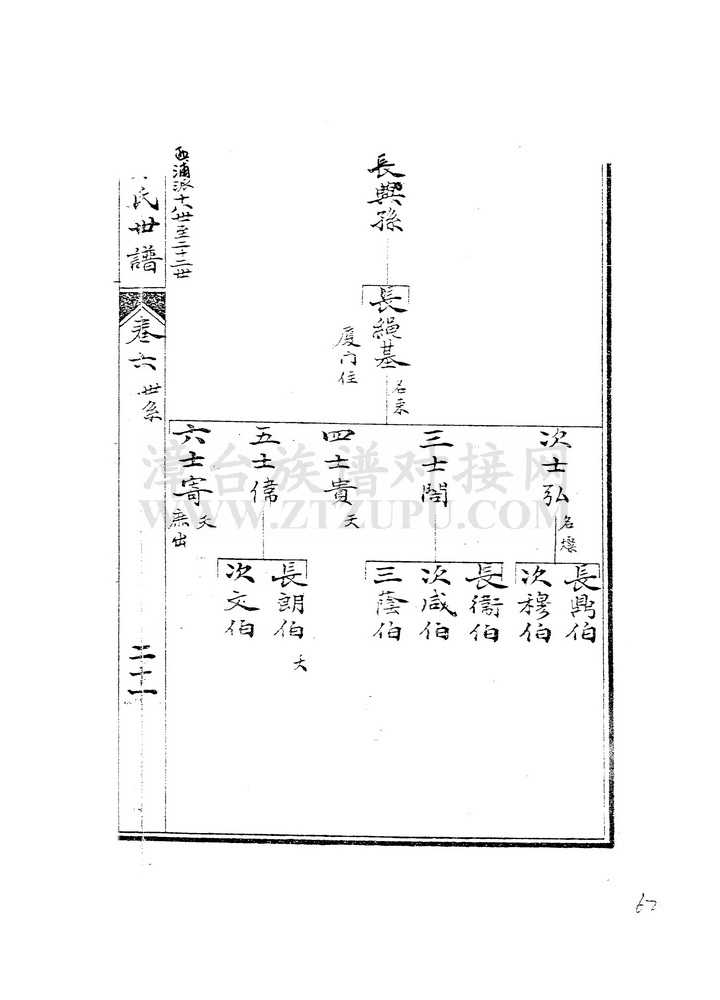 長興孫
長繩基
名來
厦門住
次士弘
名壎
三士閣
四士貴
夭
五士偉
六士寄
夭
庶出
長鼎伯
次穆伯
長衞伯
次咸伯
三蔭伯
長朗伯
夭
次文伯
西浦派十八世至二十二世
氏世譜
卷六
世系
二十一
漳台族谱对接网
WWW.ZTZUPU.COM
67